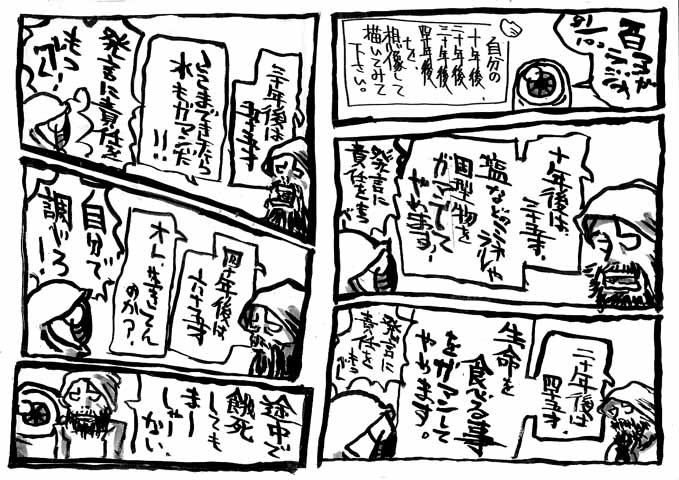 自分の
十年後、
二十年後、
三十年後
四十年後
を、
想像して
描いてみて
下さい。
十年後は、
三十五才。
塩などミネラルや
固型物を
ガマンして
やめます!
発言に
責任を
二十年後は
四十五才。
生命を
食べる事
をガマンして
やめます。
発言に
責任を
三十年後は
五十五才
ここまできたら
水もガマンだ
!!!
発言に責任を
もってー!
四十年後は
六十五才
オレ生きてん
のか?
自分で
調べろ!
途中で
餓死
しても
まー
しゃー
かい